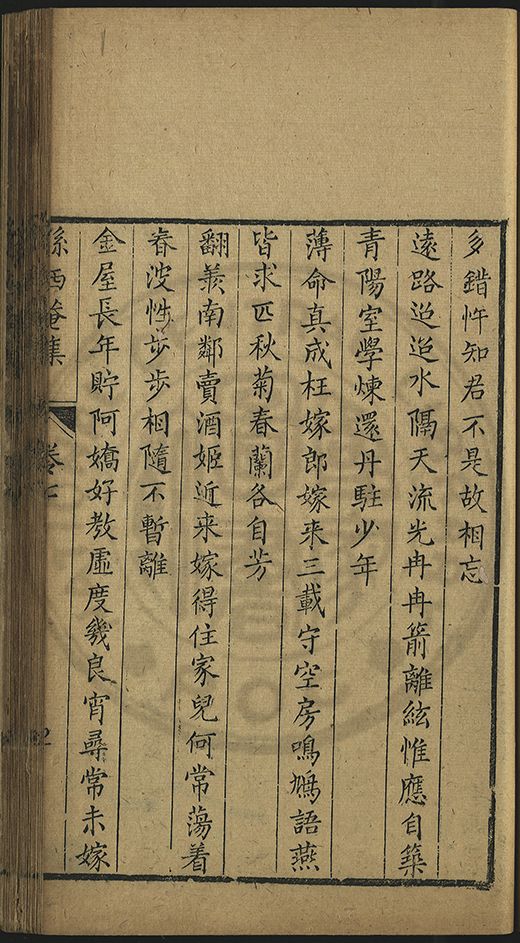 多錯忤知君不是故相忘
遠路迢迢水隔天流光冉冉箭離絃惟應自築
青陽室學煉還丹駐少年
薄命真成枉嫁郎嫁来三載守空房鳴鳩語燕
皆求匹秋菊春蘭各自芳
翻羨南鄰賣酒姬近来嫁得住家兒何常蕩着
春波性步步相隨不暫離
金屋長年貯阿嬌好教虛度幾良宵尋常未嫁
孫西菴集 卷七